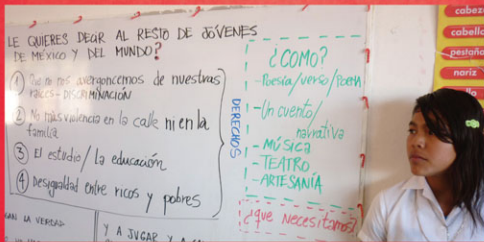 LE QUIERES DECIR AL RESTO DE JÓVENES
DE MÉXICO Y DEL MUNDO?
① Que no nos avergoncemos de nuestras
raíces - DISCRIMINACIÓN
② No más violencia en la calle ni en la
familia
③ El estudio / la educación
④ Desigualdad entre ricos y pobres
DERECHOS
¿COMO?
- Poesía/verso/Poem
- Un cuento/
narrativa
- MÚSICA
- TEATRO
- ARTESANÍA
¿que necesitamos?
LA VERDAD
Y A JUGAR Y A
cabez
cabello
pestaña
nariz